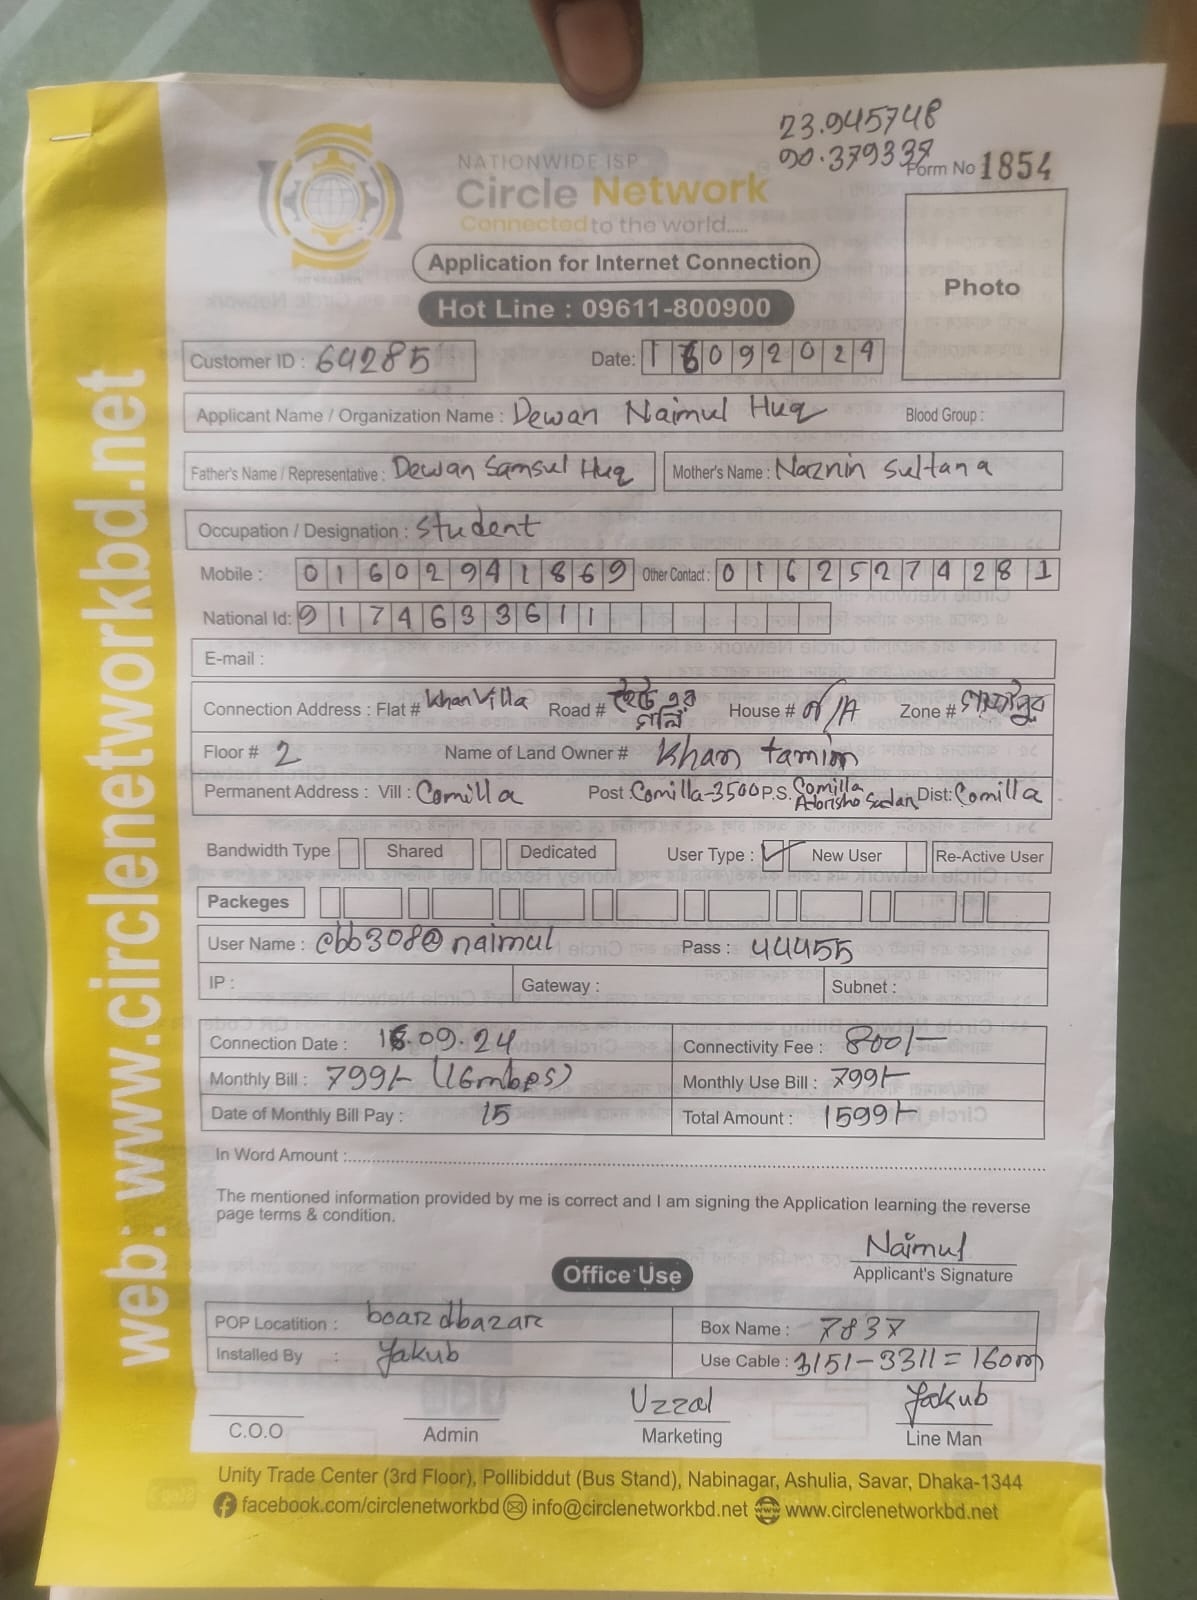 23.945748
90.379337
Form No 1854
NATIONWIDE ISP
Circle Network
Connected to the world.....
Application for Internet Connection
Photo
Hot Line : 09611-800900
Customer ID : 64285 Date: 16092024
Applicant Name / Organization Name : Dewan Naimul Huq Blood Group :
Father's Name / Representative : Dewan Samsul Huq Mother's Name : Naznin Sultana
Occupation / Designation : Student
Mobile : 01602941869 Other Contact : 01625274281
National Id: 9174633611
E-mail :
Connection Address : Flat # Khan Villa Road # গলি House # N/A Zone # গাজীপুর
Floor # 2 Name of Land Owner # Khan tamim
Permanent Address : Vill : Comilla Post : Comilla-3500 P.S. Comilla Adorsho Sadar Dist: Comilla
Bandwidth Type Shared Dedicated User Type : ✓ New User Re-Active User
Packeges
User Name : cbb308@naimul Pass : 44455
IP : Gateway : Subnet :
Connection Date : 16.09.24 Connectivity Fee : 800/-
Monthly Bill : 799/- (16mbps) Monthly Use Bill : 799/-
Date of Monthly Bill Pay : 15 Total Amount : 1599/-
In Word Amount :
The mentioned information provided by me is correct and I am signing the Application learning the reverse
page terms & condition.
Naimul
Applicant's Signature
Office Use
POP Locatition : boardbazar Box Name : 7837
Installed By : Yakub Use Cable : 3151-3311=160m
Uzzal Yakub
C.O.O Admin Marketing Line Man
Unity Trade Center (3rd Floor), Pollibiddut (Bus Stand), Nabinagar, Ashulia, Savar, Dhaka-1344
facebook.com/circlenetworkbd info@circlenetworkbd.net www.circlenetworkbd.net
web: www.circlenetworkbd.net